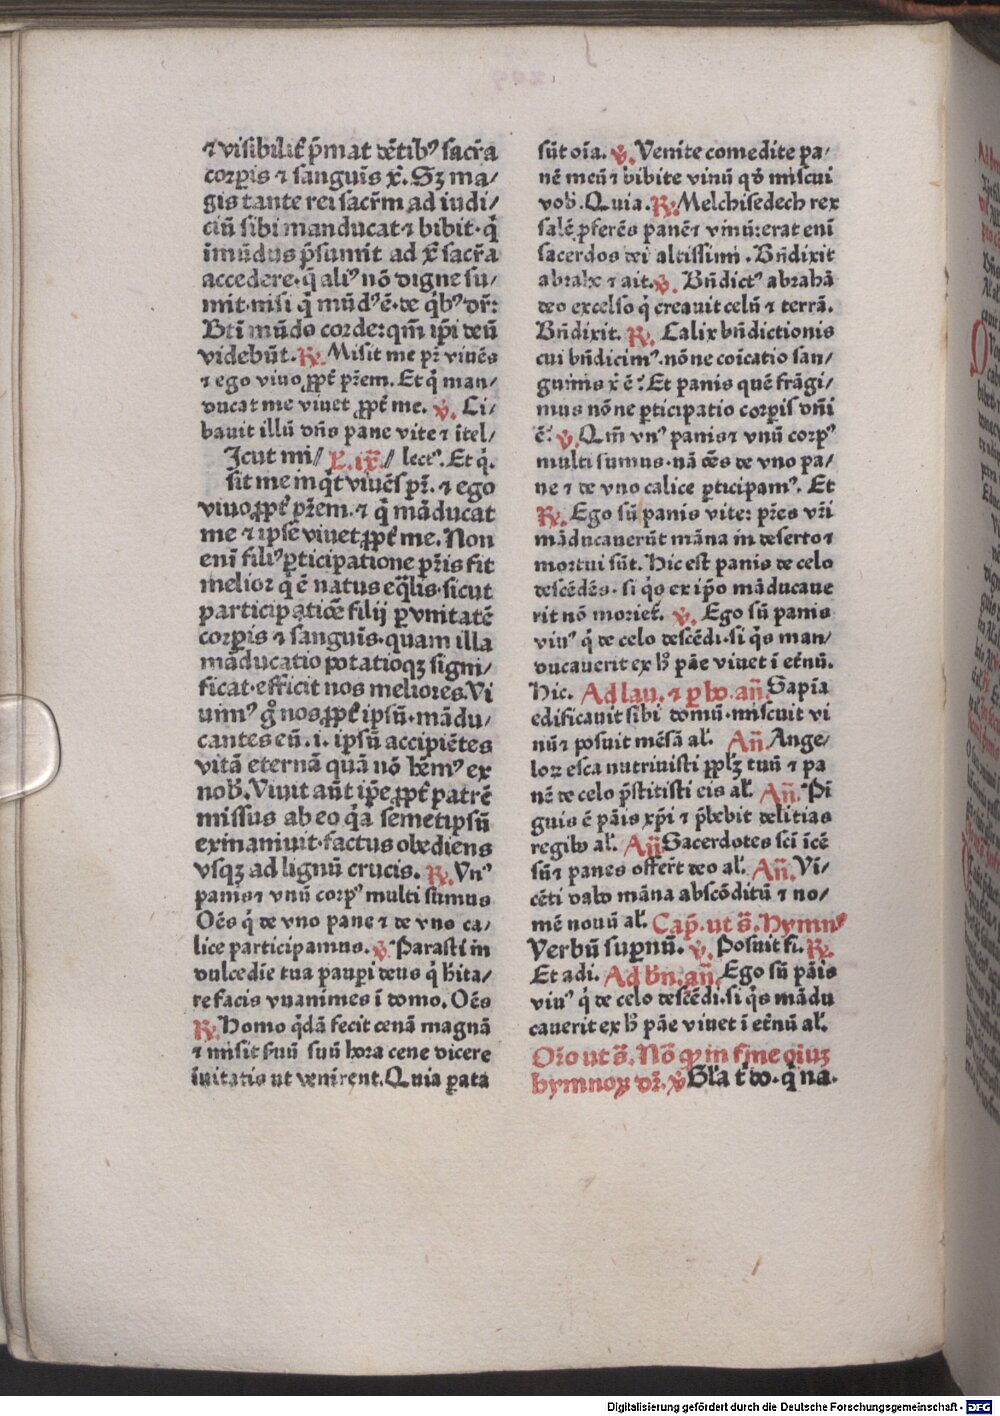 ⁊ visibilit᷒ p̄mat dētibꝰ sacr̄a
corꝑis ⁊ sanguīs xͥ. Sꝫ ma⸗
gis tante rei sacr̄m ad iudi⸗
ciū sibi manducat ⁊ bibit· qͥ
īmūdus p̄sumit ad xͥ sacr̄a
accedere· q̄ aliꝰ nō digne su⸗
mit· nisi qͥ mūdꝰ ē· de qͥbꝰ dr̄:
Bti̅ mūdo corde: qm̄ ip̄i deū
videbūt. ℟. Misit me pr̄ viuēs
⁊ ego viuo ꝓpt᷒ pr̄em. Et qͥ man⸗
ducat me viuet ꝓpt᷒ me. ℣. Ci⸗
bauit illū dn̄s pane vite ⁊ ītel⸗
Icut mi// X. ix̄. // lectꝰ. Et qͥ.
sit me inqͥt viuēs pr̄. ⁊ ego
viuo ꝓpt᷒ pr̄em. ⁊ qͥ māducat
me ⁊ ipse viuet ꝓpt᷒ me. Non
eni̅ filiꝰ ꝑticipatione pr̄is fit
melior qͥ ē natus eq̄lis· sicut
participatiōe filij ꝑ vnitatē
corꝑis ⁊ sanguīs· quam illa
māducatio potatioqꝫ signi⸗
ficat· efficit nos meliores. Vi
uimꝰ gͦ nos ꝓpt᷒ ipsū· mādu⸗
cantes eū .i. ipsū accipiētes
vitā eternā quā nō hēmꝰ ex
nob᷒. Viuit aūt ip̄e ꝓpt᷒ patrē
missus ab eo qͥa semetipsū
exinaniuit· factus obediens
vsqꝫ ad lignū crucis. ℟. Vnꝰ
panis ⁊ vnū corpꝰ multi sumus
Oēs qͥ de vno pane ⁊ de vno ca⸗
lice participamus. ℣. Parasti in
dulcedīe tua pauꝑi deus qͥ hīta⸗
re facis vnanimes ī domo. Oēs
℟. Homo qͥdā fecit cenā magnā
⁊ misit suū suū hora cene dicere
īuitatis ut venirent. Quia ꝑata
sūt oīa. ℣. Venite comedite pa⸗
nē meū ⁊ bibite vinū qd̄ miscui
vob᷒. Quia. ℟. Melchisedech rex
salē ꝓferēs panē ⁊ vinū: erat enī
sacerdos dei altissimi. Bn̄dixit
abrahe ⁊ ait. ℣. Bn̄dictꝰ abrahā
deo excelso qͥ creauit celū ⁊ terrā.
Bn̄dixit. ℟. Calix bn̄dictionis
cui bn̄dicimꝰ· nōne cōicatio san⸗
guinis xͥ ē? Et panis quē frāgi⸗
mus nōne ꝑticipatio corꝑis dn̄i
ē? ℣. Qm̄ vnꝰ panis ⁊ vnū corpꝰ
multi sumus· nā oēs de vno pa⸗
ne ⁊ de vno calice ꝑticipamꝰ. Et
℟. Ego sū panis vite: pr̄es vr̄i
māducauerūt māna in deserto ⁊
mortui sūt. Hic est panis de celo
descēdēs· si qͥs ex ip̄o māducaue
rit nō moriet᷒. ℣. Ego sū panis
viuꝰ qͥ de celo descēdi· si qͥs man⸗
ducauerit ex hͦ pāe viuet ī et̄nū.
Hic. Ad lau. ⁊ ꝑ ho. an̄. Sapīa
edificauit sibi domū· miscuit vi
nū ⁊ posuit mēsā al᷒. An̄. Ange⸗
loꝝ esca nutriuisti ppl̄ꝫ tuū ⁊ pa
nē de celo p̄stitisti eis al᷒. An̄. Pī
guis ē pāis xp̄i ⁊ p̄bebit delitias
regibꝰ al᷒. An̄. Sacerdotes sc̄i īcē
sū ⁊ panes offer̄t deo al᷒. An̄. Vī⸗
cēti dabo māna abscōditū ⁊ no⸗
mē nouū al᷒. Cap̄. ut s̄. Hymnꝰ
Verbū suꝑnū. ℣. Posuit fi. ℟.
Et adi. Ad bn̄. an̄. Ego sū pāis
viuꝰ qͥ de celo descēdi· si qͥs mādu
cauerit ex hͦ pāe viuet ī et̄nū al᷒.
Or̄o ut s̄. Nō qꝫ in fine oīuꝫ
hymnoꝝ dr̄. ℣. Gl̄a t᷒ do· qͥ na·
Digitalisierung gefördert durch die Deutsche Forschungsgemeinschaft - DFG